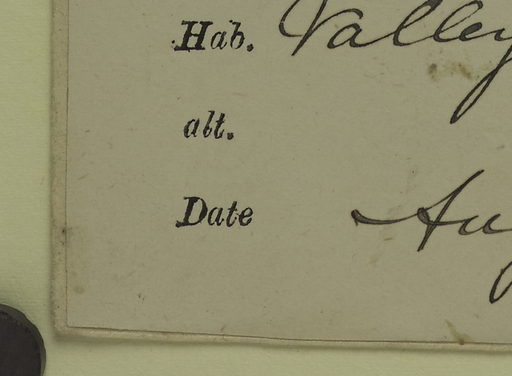 Hab. Valley
alt.
Date Aug